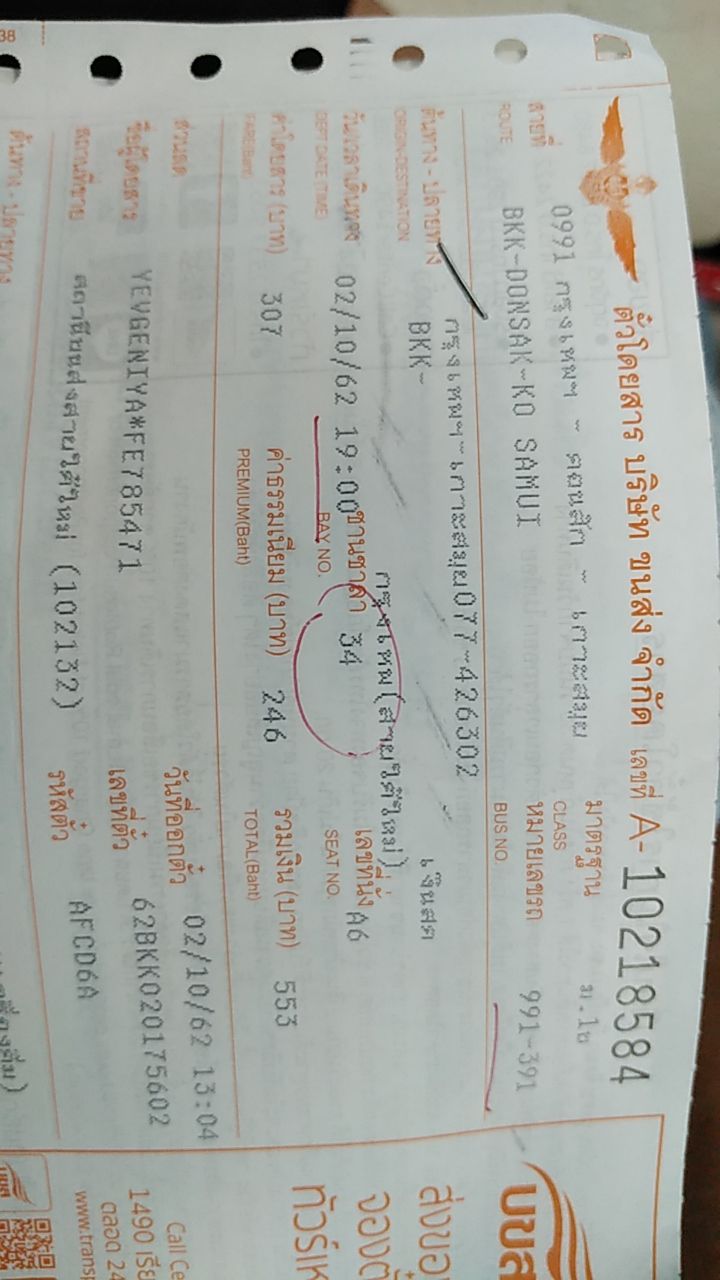 ตั๋วโดยสาร บริษัท ขนส่ง จำกัด เลขที่ A-10218584
0991 กรุงเทพฯ - ดอนสัก - เกาะสมุย มาตรฐาน ม.1ข
CLASS
สายที่ BKK-DONSAK-KO SAMUI หมายเลขรถ 991-391
ROUTE BUS NO.
กรุงเทพฯ-เกาะสมุย077-426302
ต้นทาง - ปลายทาง BKK- เงินสด
ORIGIN-DESTINATION
กรุงเทพ(สายใต้ใหม่)
วันเวลาเดินทาง 02/10/62 19:00 ชานชาลา 34 เลขที่นั่ง A6
DEPT DATE (TIME) BAY NO. SEAT NO.
ค่าโดยสาร (บาท) 307 ค่าธรรมเนียม (บาท) 246 รวมเงิน (บาท) 553
FARE(Baht) PREMIUM(Baht) TOTAL(Baht)
ส่วนลด วันที่ออกตั๋ว 02/10/62 13:04
ชื่อผู้โดยสาร YEVGENIYA*FE785471 เลขที่ตั๋ว 62BKK020175602
สถานที่ขาย สถานีขนส่งสายใต้ใหม่ (102132) รหัสตั๋ว AFCD6A
ต้นทาง - ปลายทาง
38
บขส
ส่งขอ
จองตั
ทัวร์เห
Call Ce
1490 เรีย
ตลอด 24
www.transp